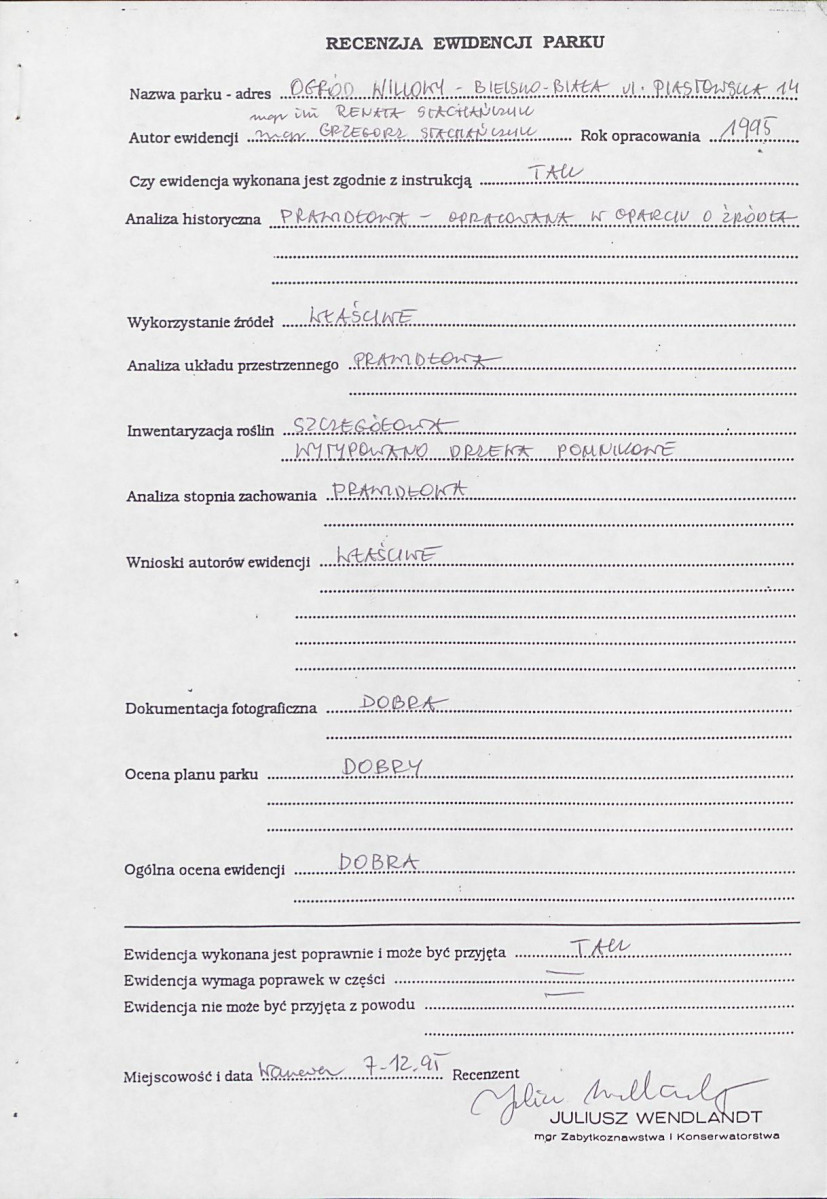 RECENZJA EWIDENCJI PARKU
Nazwa parku - adres OGRÓD WILLOWY - BIELSKO-BIAŁA ul. PIASTOWSKA 14
mgr inż RENATA STACHAŃCZYK
Autor ewidencji mgr GRZEGORZ STACHAŃCZYK Rok opracowania 1995
Czy ewidencja wykonana jest zgodnie z instrukcją TAK
Analiza historyczna PRAWIDŁOWA - OPRACOWANA W OPARCIU O ŹRÓDŁA
Wykorzystanie źródeł WŁAŚCIWE
Analiza układu przestrzennego PRAWIDŁOWA
Inwentaryzacja roślin SZCZEGÓŁOWA
WYTYPOWANO DRZEWA POMNIKOWE
Analiza stopnia zachowania PRAWIDŁOWA
Wnioski autorów ewidencji WŁAŚCIWE
Dokumentacja fotograficzna DOBRA
Ocena planu parku DOBRY
Ogólna ocena ewidencji DOBRA
Ewidencja wykonana jest poprawnie i może być przyjęta TAK
Ewidencja wymaga poprawek w części —
Ewidencja nie może być przyjęta z powodu —
Miejscowość i data 7-12.95 Recenzent
JULIUSZ WENDLANDT
mgr Zabytkoznawstwa i Konserwatorstwa